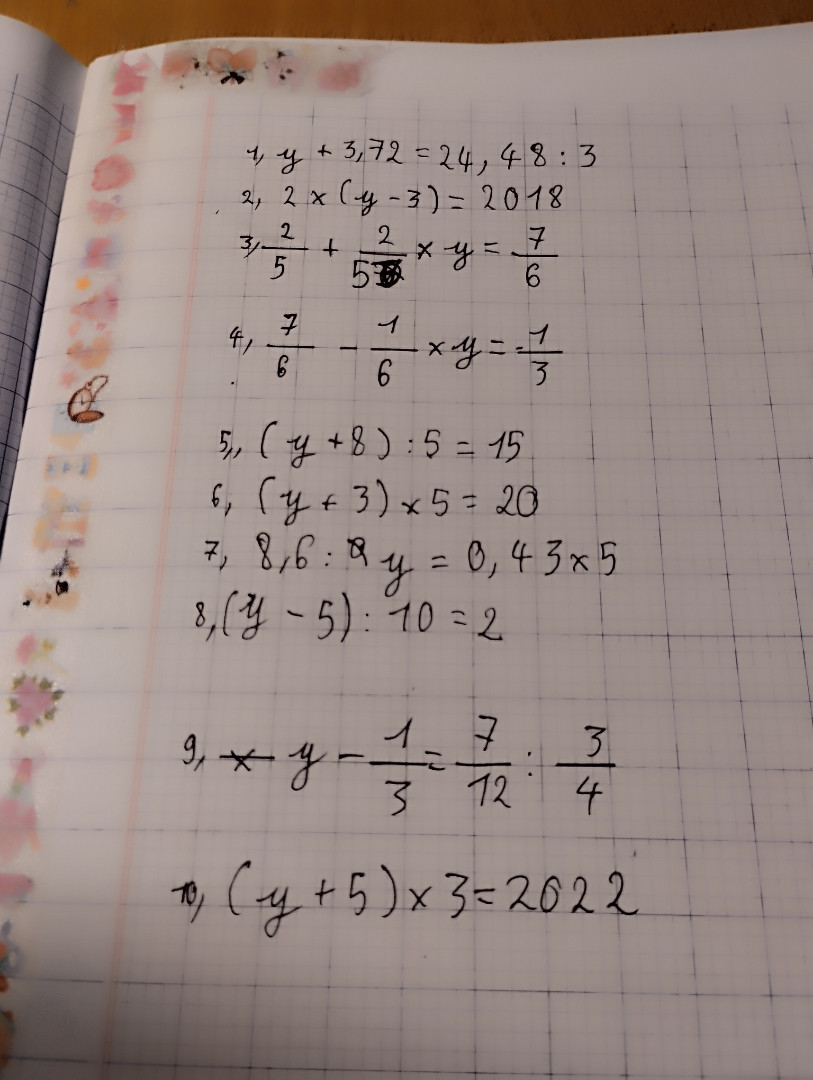 1, y + 3,72 = 24,48 : 3
2, 2 x (y - 3) = 2018
3, 2/5 + 2/5 x y = 7/6
4, 7/6 - 1/6 x y = -1/3
5,, (y + 8) : 5 = 15
6, (y + 3) x 5 = 20
7, 8,6 : y = 0,43 x 5
8, (y - 5) : 10 = 2
9, y - 1/3 = 7/12 : 3/4
10, (y + 5) x 3 = 2022